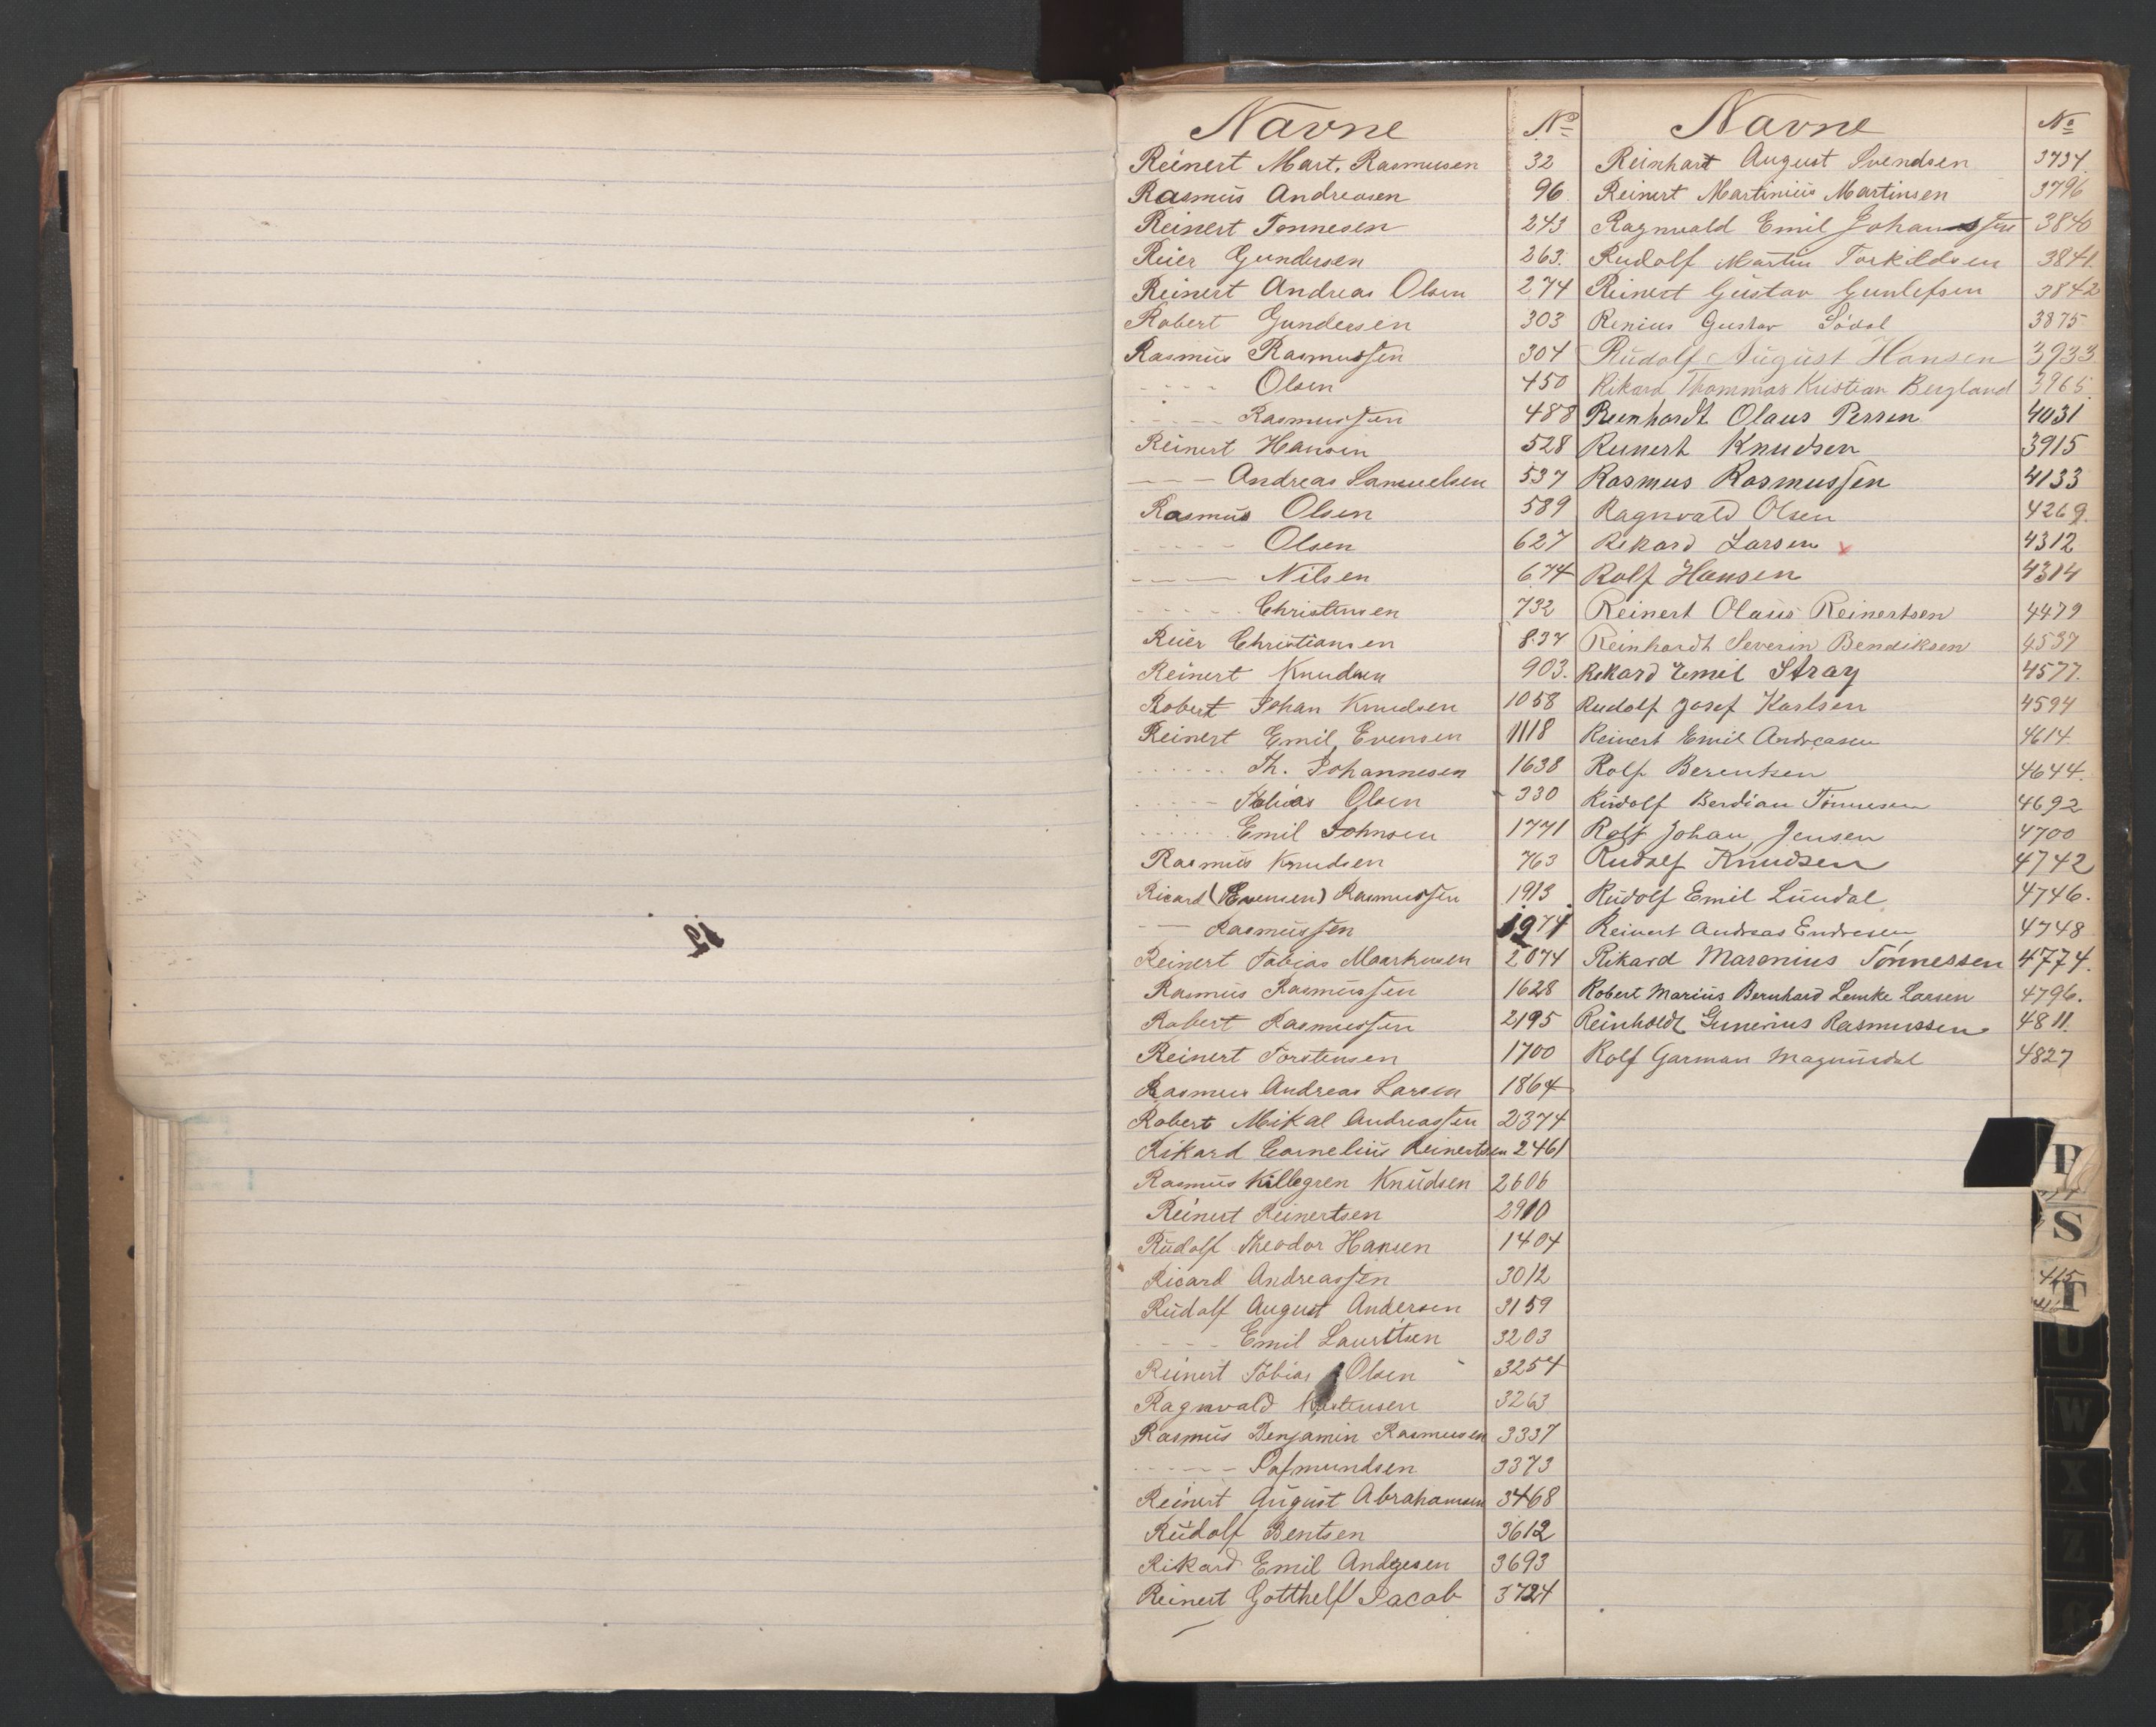 Navne No
Reinert Mart. Rasmusen 32
Rasmus Andreasen 96
Reinert Tonnesen 243
Reier Gundersen 263.
Reinert Andreas Olsen 274
Robert Gundersen 303
Rasmus Rasmussen 304
- - - - Olsen 450
- - - - Rasmussen 488
Reinert Hansen 528
- - - Andreas Samuelsen 537
Rasmus Olsen 589
- - - - Olsen 627
- - - - Nilsen 674
- - - - Christensen 732
Reier Christiansen 837
Reinert Knudsen 903.
Robert Johan Knudsen 1058
Reinert Emil Evensen 1118
- - - - Th. Johannesen 1638
- - - - Tobias Olsen 330
- - - - Emil Johnsen 1771
Rasmus Knudsen 763
Ricard (Evensen) Rasmussen 1913
- - Rasmussen 1974
Reinert Tobias Maarhusen 2074
Rasmus Rasmussen 1628
Robert Rasmussen 2195
Reinert Torstensen 1700
Rasmus Andreas Larsen 1864
Robert Mikal Andreassen 2374
Rikard Cornelius Reinertsen 2461
Rasmus Killegren Knudsen 2606
Reinert Reinertsen 2910
Rudolf Theodor Hansen 1404
Ricard Andreassen 3012
Rudolf August Andersen 3159
- - - - Emil Lauritsen 3203
Reinert Tobias Olsen 3254
Ragnvald 3263
Rasmus Benjamin Rasmusen 3337
- - - - 3373
Reinert August Abrahamsen 3468
Rudolf Bentsen 3612
Rikard Emil Andresen 3693
Reinert Gotthelf Jacob 3724
Navne No
Reinhart August Svendsen 3734.
Reinert Martinius Martinsen 3796
Ragnvald Emil Johanssen 3840
Rudolf Martin Torkildsen 3841.
Reinert Gustav Gunlefsen 3842
Renius Gustav Sødal 3875
Rudolf August Hansen 3933
Rikard Thommas Kristian Bergland 3965.
Reinhardt Olaus Persen 4031
Reinert Knudsen 3915
Rasmus Rasmussen 4133
Ragnvald Olsen 4269.
Rikard Larsen x 4312
Rolf Hansen 4314
Reinert Olaus Reinertsen 4479
Reinhardt Severin Bendiksen 4537
Rikard Emil Stray 4577.
Rudolf Josef Karlsen 4594
Reinert Emil Andreasen 4614.
Rolf Berentsen 4644.
Rudolf Berdian Tønnesen 4692
Rolf Johan Jensen 4700
Rudolf Knudsen 4742
Rudolf Emil Lundal 4746.
Reinert Andreas Endresen 4748
Rikard Maronius Tønnessen 4774.
Robert Marius Bernhard Lemke Larsen 4796.
Reinholdt Gunerius Rasmussen 4811.
Rolf Garman Magnusdal 4827
R
S
T
U
W
X
Z
Ø